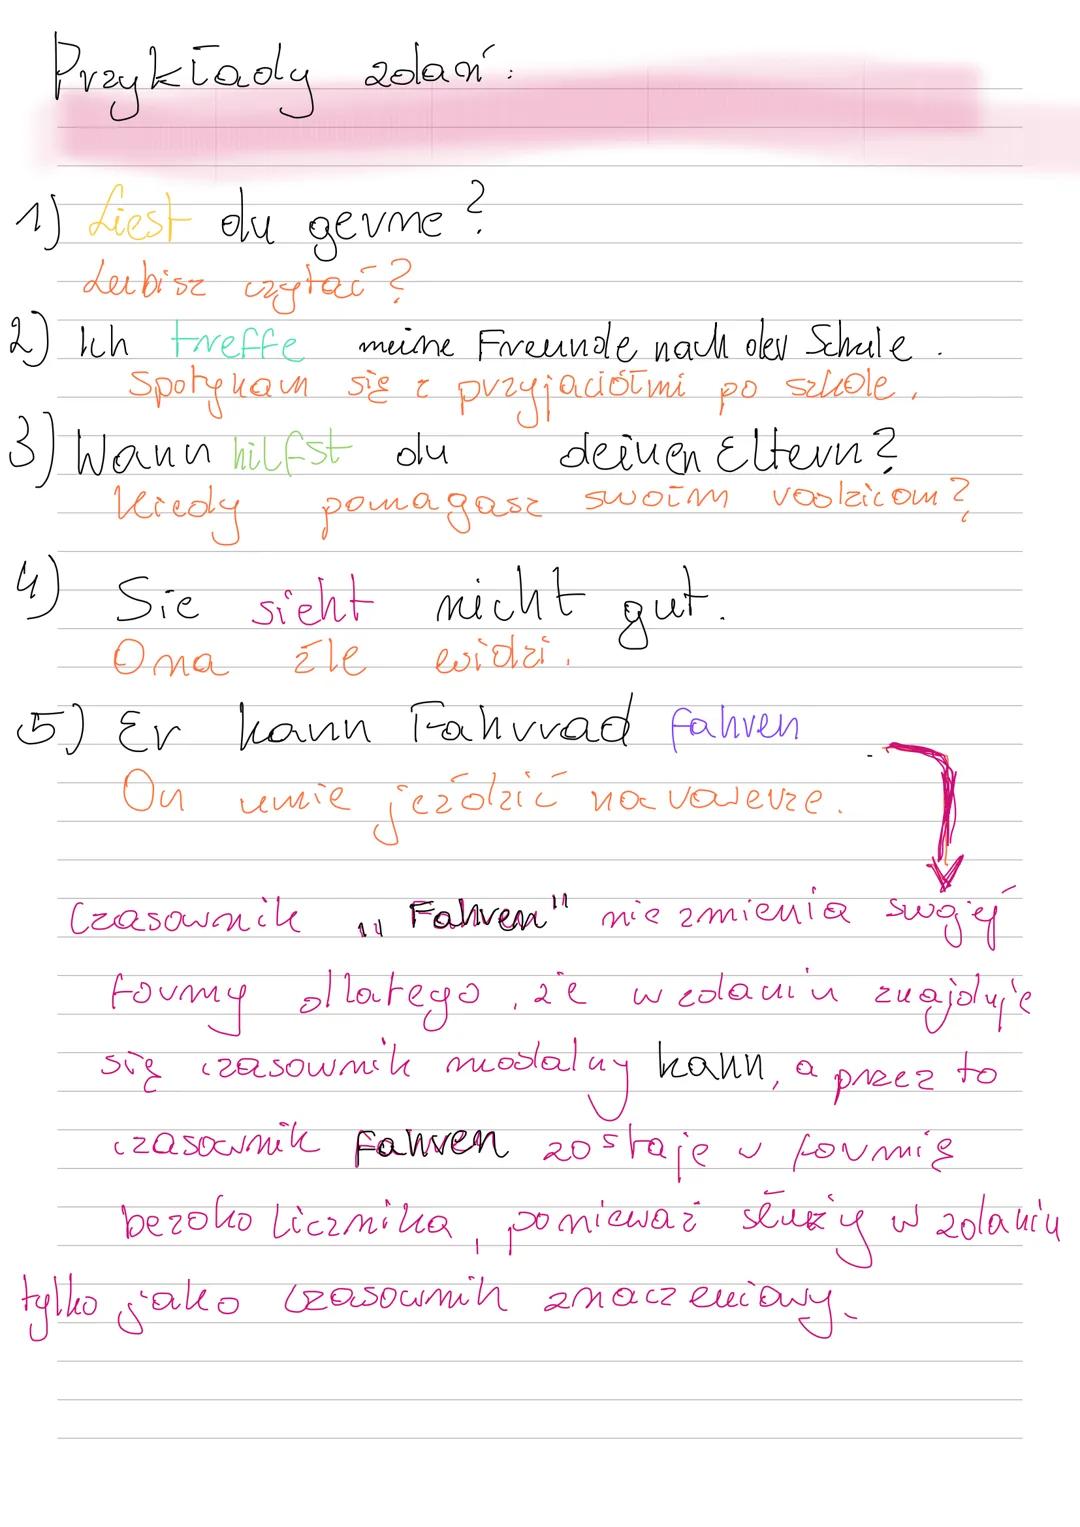 Przykłady zdań:
1) Liest du gerne?
Lubisz czytać?
2) Ich treffe meine Freunde nach der Schule.
Spotykam się z przyjaciółmi po szkole.
3) Wann hilfst du deinen Eltern?
Kiedy pomagasz swoim rodzicom?
4) Sie sieht nicht gut.
Ona źle widzi.
5) Er kann Fahrrad fahren
On umie jeździć na rowerze.
Czasownik „Fahren" nie zmienia swojej
formy dlatego, że w zdaniu znajduje
się czasownik modalny kann, a przez to
czasownik fahren zostaje w formię
bezokolicznika, ponieważ służy w zdaniu
tylko jako czasownik znaczeniowy.